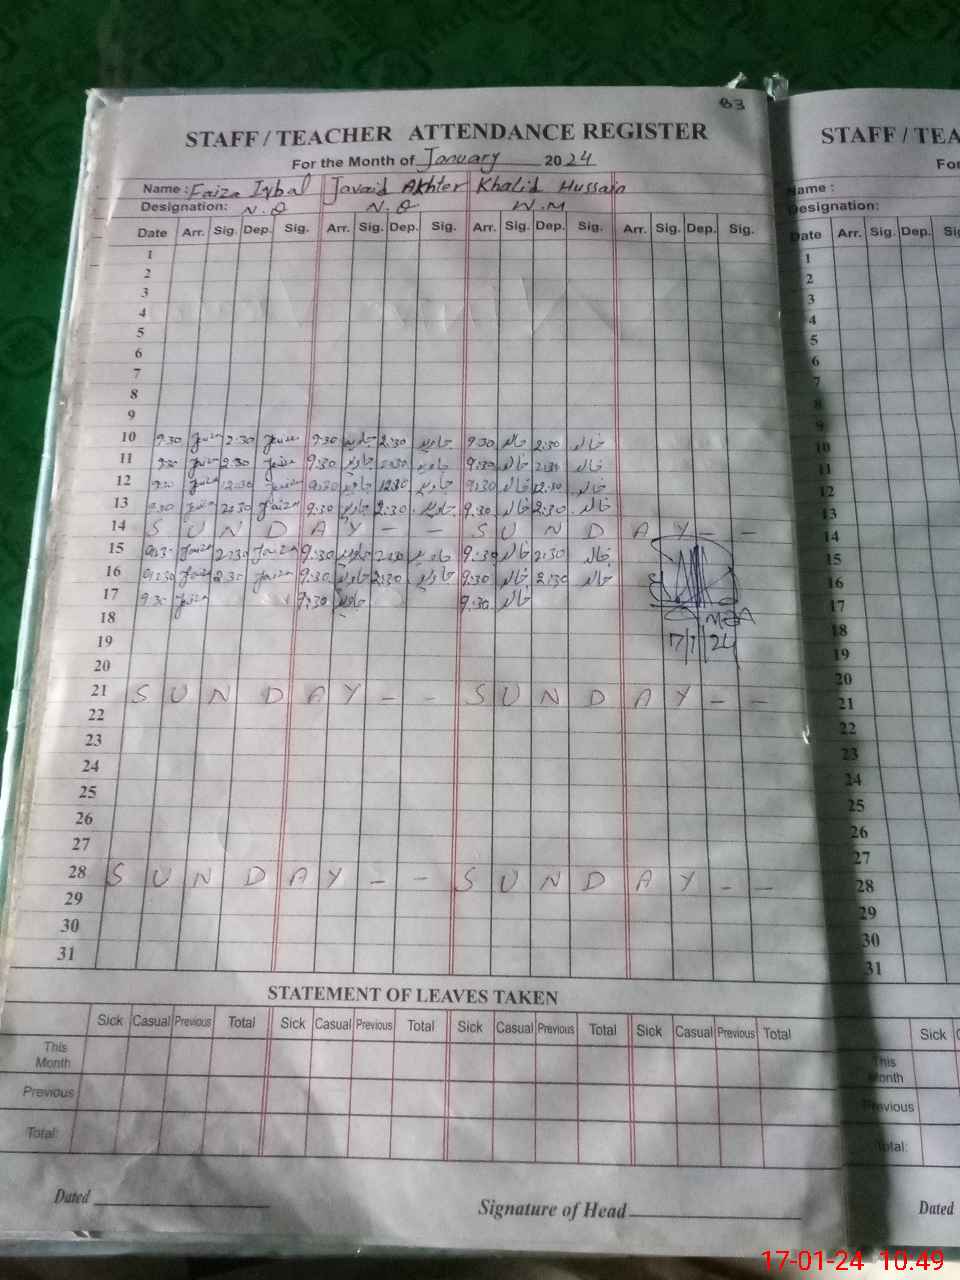 83
STAFF / TEACHER ATTENDANCE REGISTER
For the Month of January 2024
Name : Faiza Iqbal Javaid Akhter Khalid Hussain
Designation: N.Q N.Q W.M
Date Arr. Sig. Dep. Sig. Arr. Sig. Dep. Sig. Arr. Sig. Dep. Sig. Arr. Sig. Dep. Sig.
1
2
3
4
5
6
7
8
9
10 9:30 Faiza 2:30 Faiza 9:30 جاوید 2:30 جاوید 9:30 خالد 2:30 خالد
11 9:30 Faiza 2:30 Faiza 9:30 جاوید 2:30 جاوید 9:30 خالد 2:30 خالد
12 9:30 Faiza 12:30 Faiza 9:30 جاوید 12:30 جاوید 9:30 خالد 12:30 خالد
13 9:30 Faiza 2:30 Faiza 9:30 جاوید 2:30 جاوید 9:30 خالد 2:30 خالد
14 S U N D A Y - - S U N D A Y - -
15 9:30 Faiza 2:30 Faiza 9:30 جاوید 2:30 جاوید 9:30 خالد 2:30 خالد
16 9:30 Faiza 2:30 Faiza 9:30 جاوید 2:30 جاوید 9:30 خالد 2:30 خالد
17 9:30 Faiza 9:30 جاوید 9:30 خالد
18
19 17/1/24
20
21 S U N D A Y - - S U N D A Y - -
22
23
24
25
26
27
28 S U N D A Y - - S U N D A Y - -
29
30
31
STATEMENT OF LEAVES TAKEN
Sick Casual Previous Total Sick Casual Previous Total Sick Casual Previous Total Sick Casual Previous Total
This Month
Previous
Total:
Dated
Signature of Head
STAFF / TEA
Fo
Name :
Designation:
Date Arr. Sig. Dep.
1
2
3
4
5
6
7
8
9
10
11
12
13
14
15
16
17
18
19
20
21
22
23
24
25
26
27
28
29
30
31
Sick
This Month
Previous
Total:
Dated
17-01-24 10:49